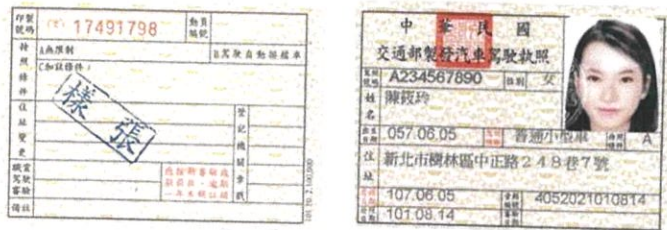 印製號碼 (六) 17491798 動員編號
持照條件 A無限制 B駕駛自動排檔車
C加註條件:
樣張
住址變更
登記機關章戳
職業駕駛審驗
備註
101.10.2,100,000
中華民國
交通部製發汽車駕駛執照
駕照號碼 A234567890 性別 女
姓名 陳筱玲
出生日期 057.06.05 普通小型車 A
住址 新北市樹林區中正路248巷7號
107.06.05 4052021010814
101.08.14